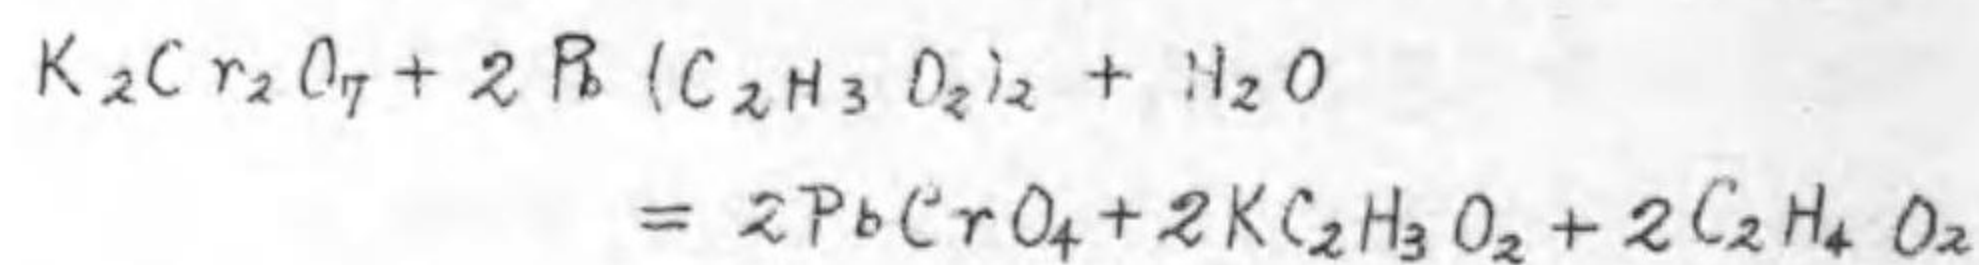 K₂Cr₂O₇ + 2 Pb (C₂H₃O₂)₂ + H₂O
= 2PbCrO₄ + 2KC₂H₃O₂ + 2C₂H₄O₂